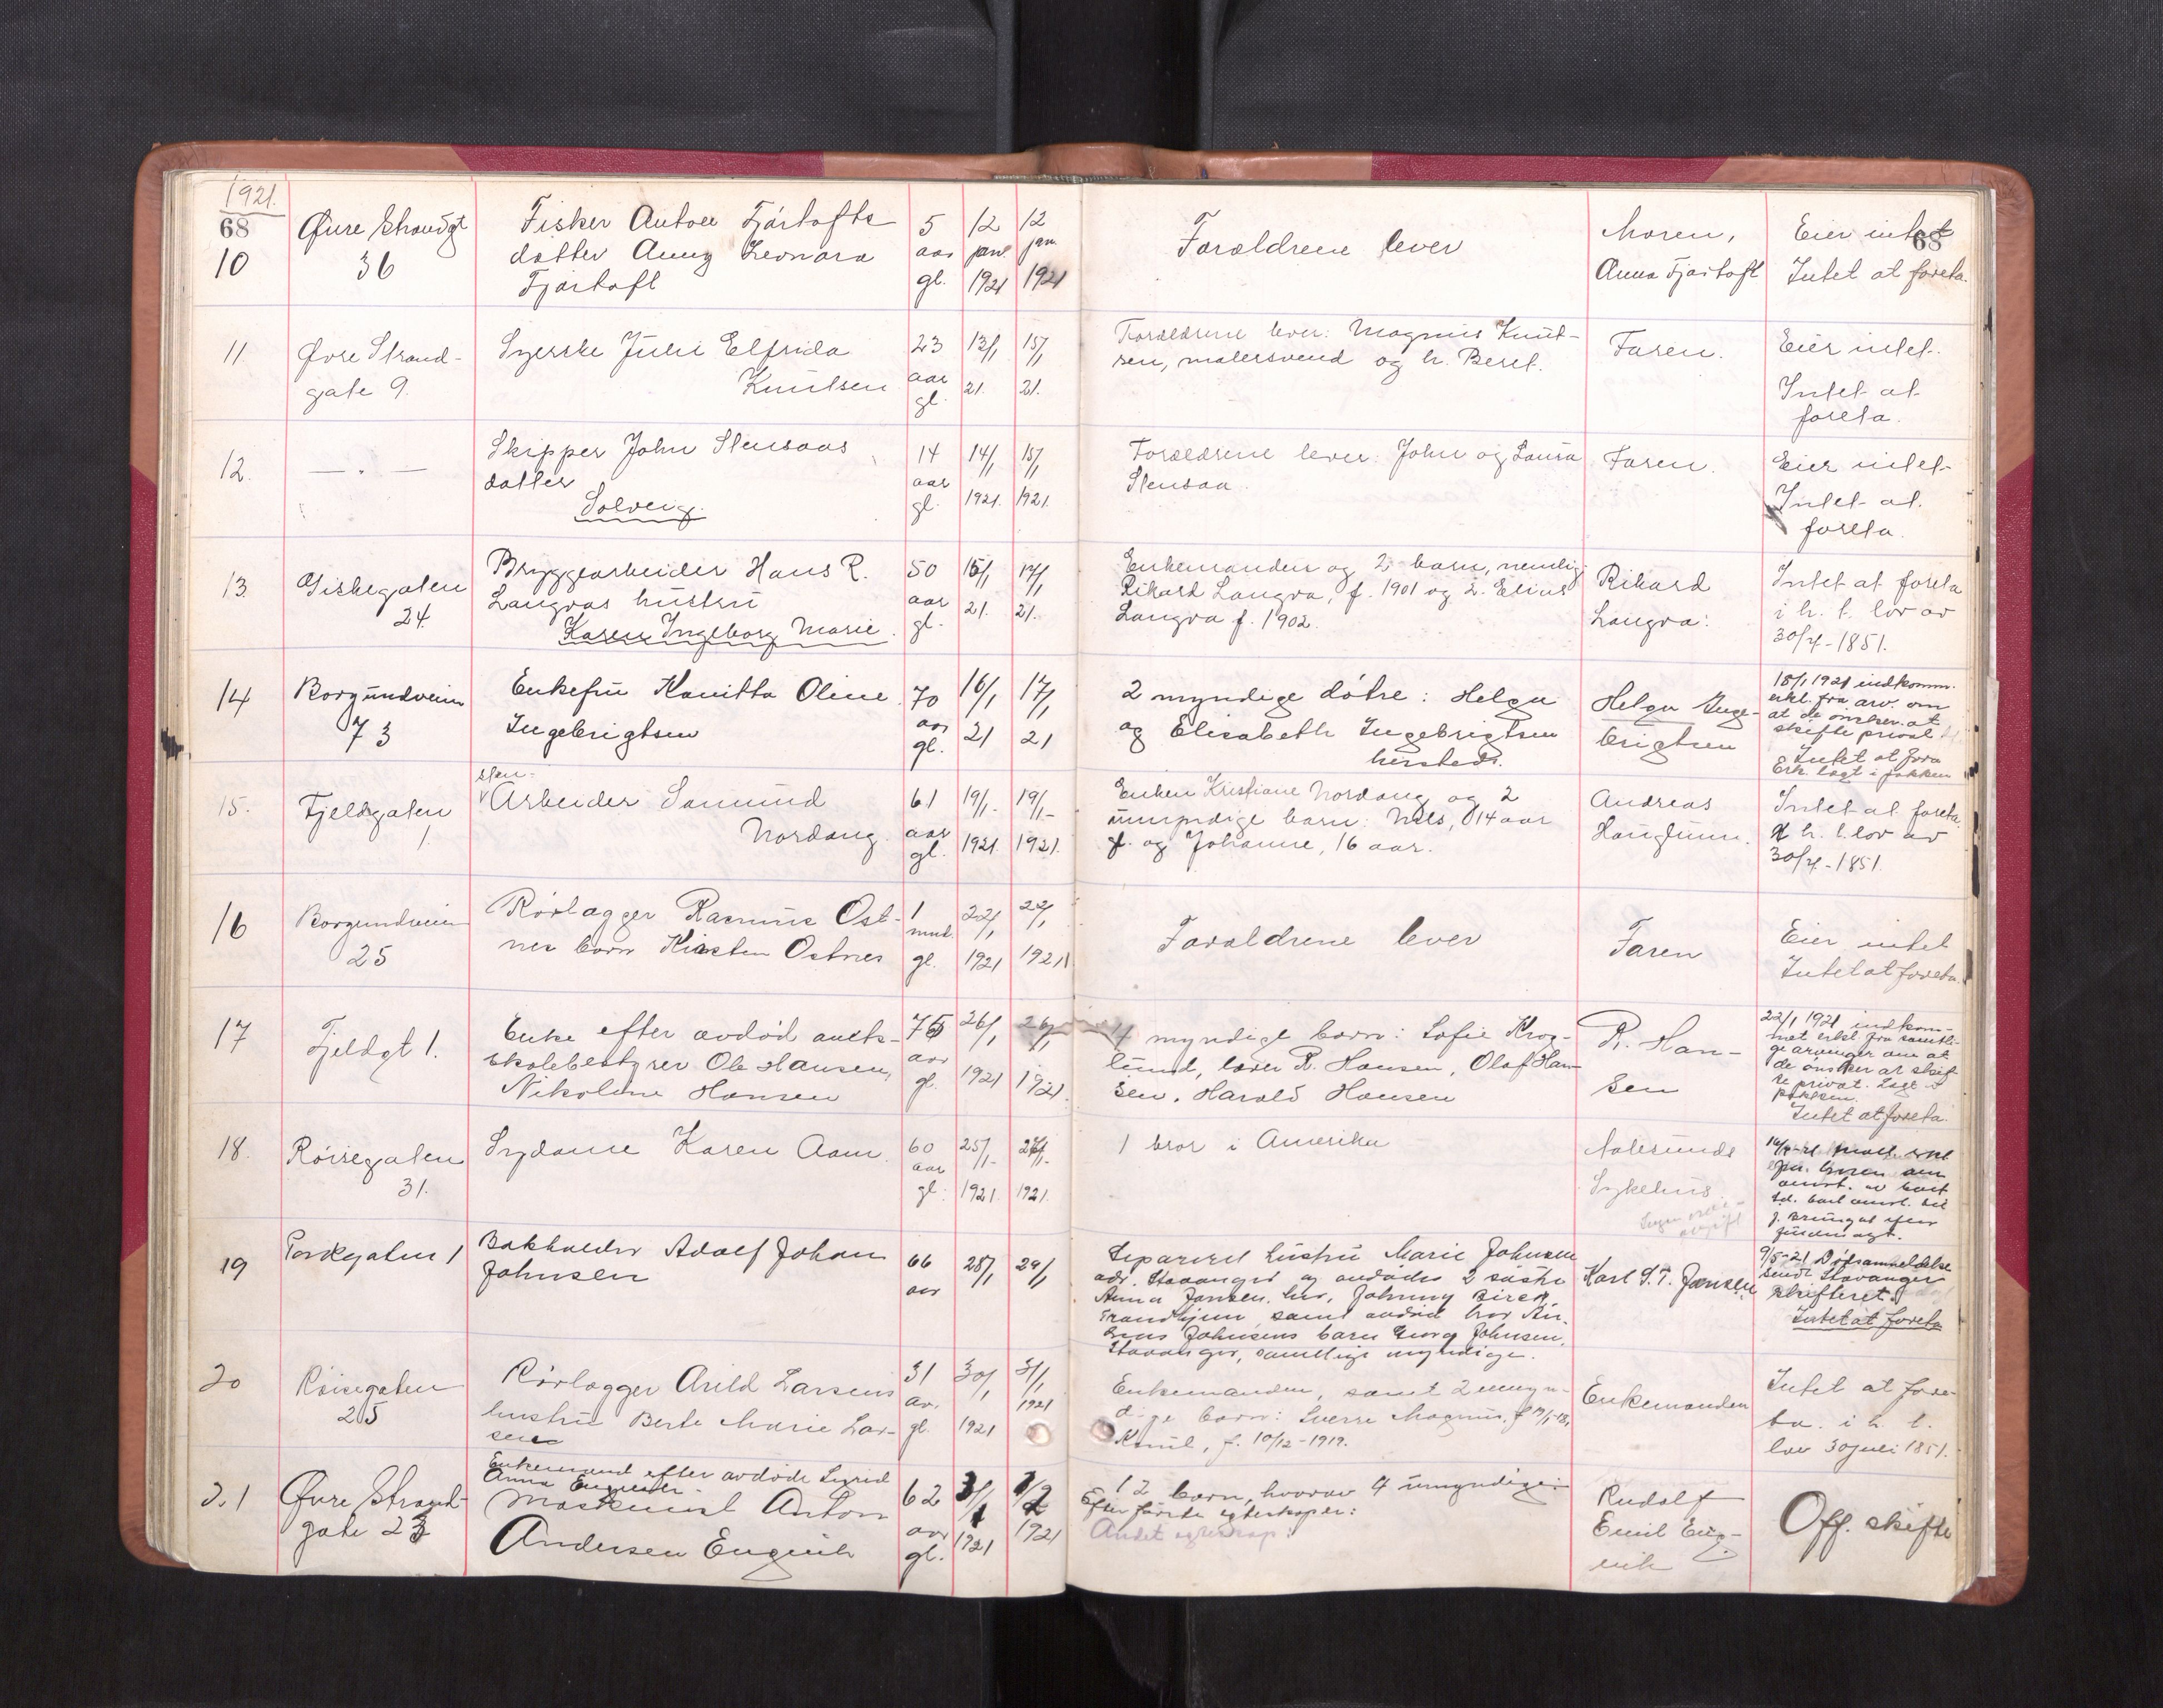 1921.
68
68
10
Øvre Strandgt
36
Fisker Anton Fjørtofts
datter Anny Leonara
Fjørtoft
5
aar
gl.
12
jan.
1921
12
jan.
1921
Forældrene lever
Moren,
Anna Fjørtoft
Eier intet
Intet at foreta.
11.
Øvre Strand-
gate 9.
Syerske Julie Elfrida
Knutsen
23
aar
gl.
13/1
21.
15/1
21.
Forældrene lever: Magnus Knut-
sen, malersvend og h. Beret.
Faren.
Eier intet.
Intet at
foreta.
12.
— " —
Skipper John Stensaas
datter
Solveig.
14
aar
gl.
14/1
1921.
15/1
1921.
Forældrene lever: John og Laura
Stensaa
Faren.
Eier intet
Intet at
foreta.
13.
Giskegaten
24.
Bryggearbeider Hans R.
Langvas hustru
Karen Ingeborg Marie.
50
aar
gl.
15/1
21.
17/1
21.
Enkemanden og 2 barn, nemlig
Rikard Langva, f. 1901 og 2. Elius
Langva f. 1902.
Rikard
Langva.
Intet at foreta
i h. t. lov av
30/7-1851.
14
Borgundveien
73
Enkefru Kanitta Oline
Ingebrigtsen
70
aar
gl.
16/1
21
17/1
21
2 myndige døtre: Helga
og Elisabeth Ingebrigtsen
hersteds.
Helga Inge-
brigtsen
18/1 1921 indkomm.
erkl. fra arv. om
at de ønsker at
skifte privat
Intet at fora
Erk. lagt i pakken
15.
Fjeldgaten
1.
sten-
Arbeider Samund
Nordang.
61
aar
gl.
19/1-
1921.
19/1-
1921.
Enken Kristiane Nordang og 2
umyndige barn: Nils, 14 aar
gl. og Johanne, 16 aar.
Andreas
Intet at foreta
i h. t. lov av
30/7-1851.
16
Borgundveien
25
Rørlægger Rasmus Ost-
nes barn Kirsten Ostnes
1
mnd.
gl.
22/1
1921
22/1
1921
Forældrene lever
Faren
Eier intet
Intet at foreta.
17
Fjeldgt 1.
Enke efter avdød amts-
skolebestyrer Ole Hansen,
Nikoline Hansen
75
aar
gl.
26/1
1921
26/1
1921.
4 myndige barn: Sofie Krog-
lund, lærer R. Hansen, Olaf Han-
sen. Harald Hansen
R. Han-
sen
22/1 1921 indkom-
met erkl fra samtli-
ge arvinger om at
de ønsker at skif-
te privat. Lagt i
pakken.
Intet at foreta.
18.
Røisegaten
31.
Sydame Karen Aam.
60
aar
gl.
25/1-
1921.
1921.
1 bror i Amerika
Aalesunds
Sykehus.
19
Parkgaten 1
Bokholder Adolf Johan
Johnsen
66
aar
28/1
29/1
Separert hustru Marie Johnsen
adr. Stavanger og avdødes 2 søstre
Anna Jansen. her, Johnny Birch,
Trondhjem samt avdød bror
Johnsens barn Georg Johnsen,
Stavanger, samtlige myndige.
Karl S. T. Jansen
9/5-21 Dødsanmeldelse
sendt Stavanger
skifteret.
Intet at foreta
20
Røisegaten
25
Rørlægger Arild Larsens
hustru Berte Marie Lar-
sen
31
aar.
gl.
30/1
1921
31/1
1921
Enkemanden, samt 2 umyn-
dige barn: Sverre Magnus,
Knut, f. 10/12-1919.
Enkemanden
Intet at fore-
ta. i h. t.
lov 30 juli 1851.
21
Øvre Strand-
gate 23
Enkemand efter avdøde Sigrid
Anna Eugenie.
Maskinist Anton
Andersen Engvik
62
aar
gl.
31/1
1921
1/2
1921
12 barn, hvorav 4 umyndige:
Efter første egteskaper:
Andet egteskap:
Rudolf
Emil Eng-
vik
Off. skifte